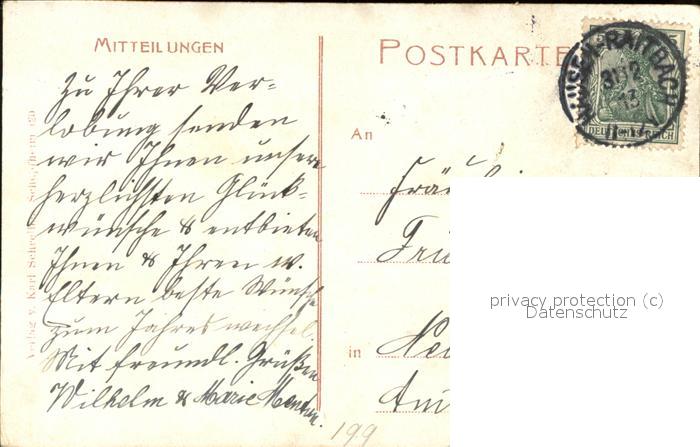 MITTEILUNGEN
Zu Ihrer Ver-
lobung senden
wir Ihnen unsere
herzlichsten Glück-
wünsche & entbieten
Ihnen & Ihren w.
Eltern beste Wünsche
zum Jahreswechsel.
Mit freundl. Grüßen
Wilhelm & Marie
199
POSTKARTE
HAUSEN-RAITBACH
31 12
13
DEUTSCHES REICH
An
in
privacy protection (c)
Datenschutz
Verlag v. Karl